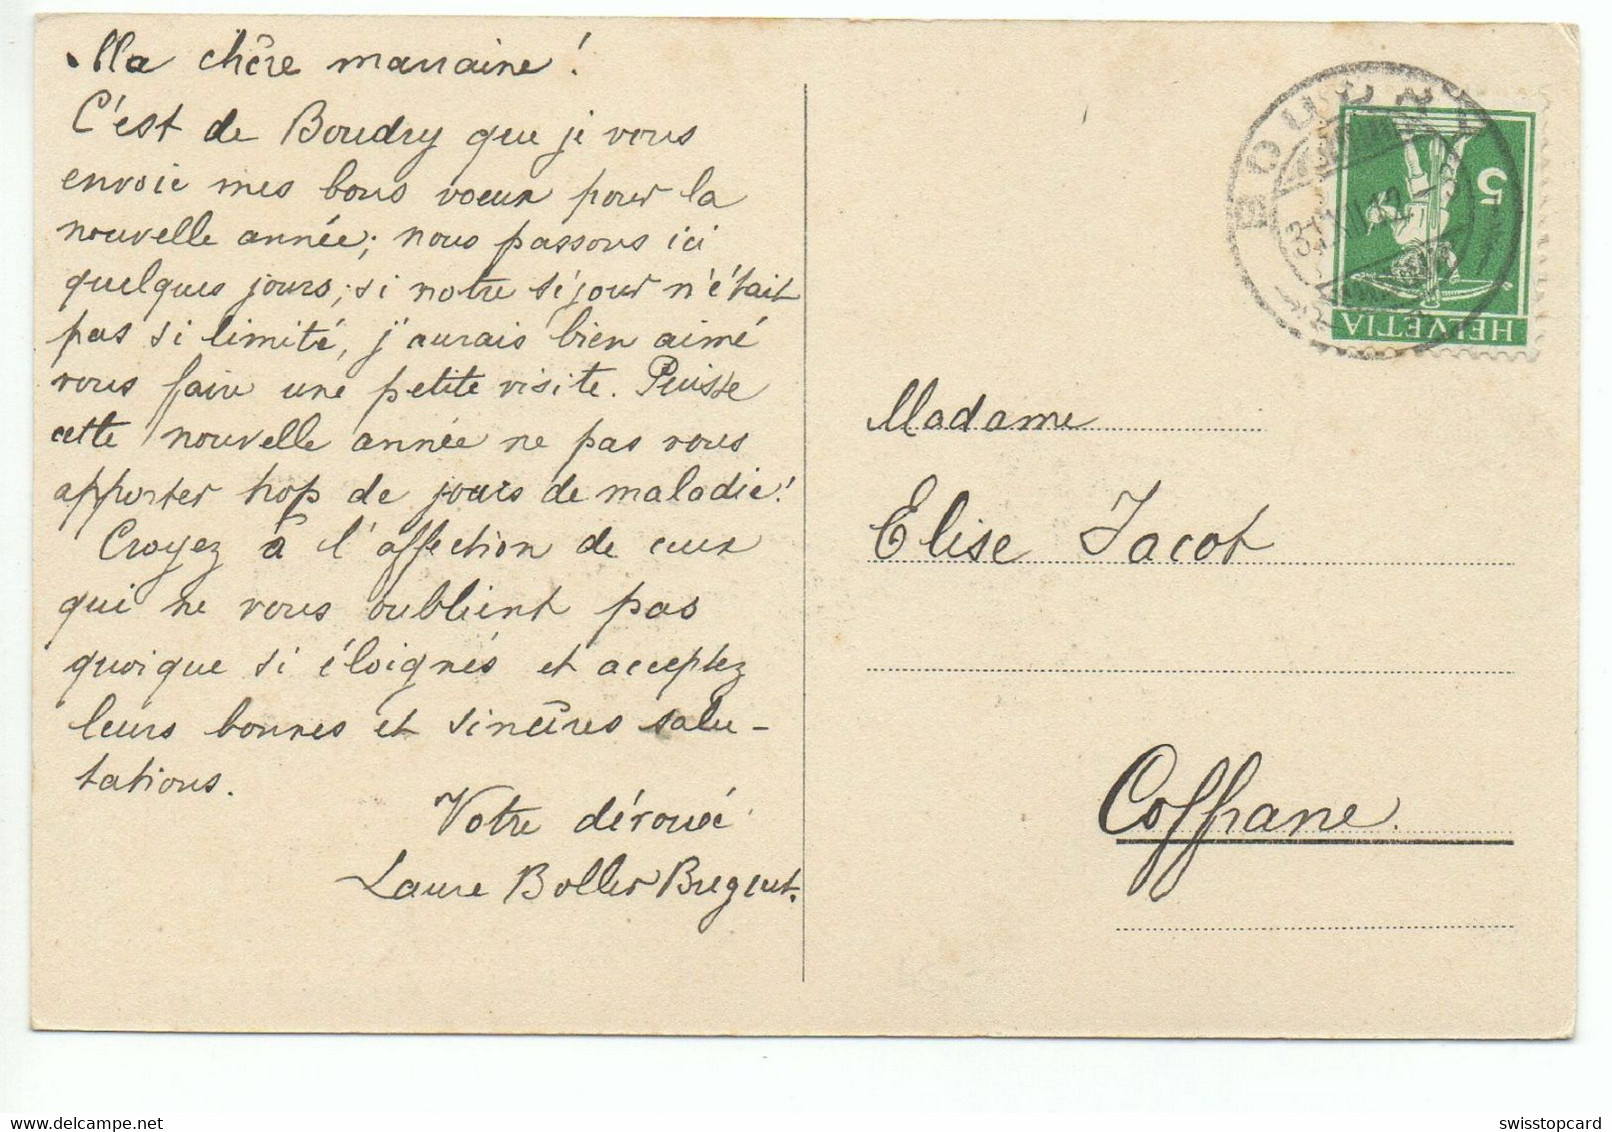 Ma chère marraine!
C'est de Boudry que je vous
envoie mes bons voeux pour la
nouvelle année; nous passons ici
quelques jours; si notre séjour n'était
pas si limité, j'aurais bien aimé
vous faire une petite visite. Puisse
cette nouvelle année ne pas vous
apporter trop de jours de maladie!
Croyez à l'affection de ceux
qui ne vous oublient pas
quoique si éloignés et acceptez
leurs bonnes et sincères salu-
tations.
Votre dévouée
Laure Boller Breguet.
BOUDRY
31.XII.12
HELVETIA
5
Madame
Elise Jacot
Coffrane.
swisstopcard